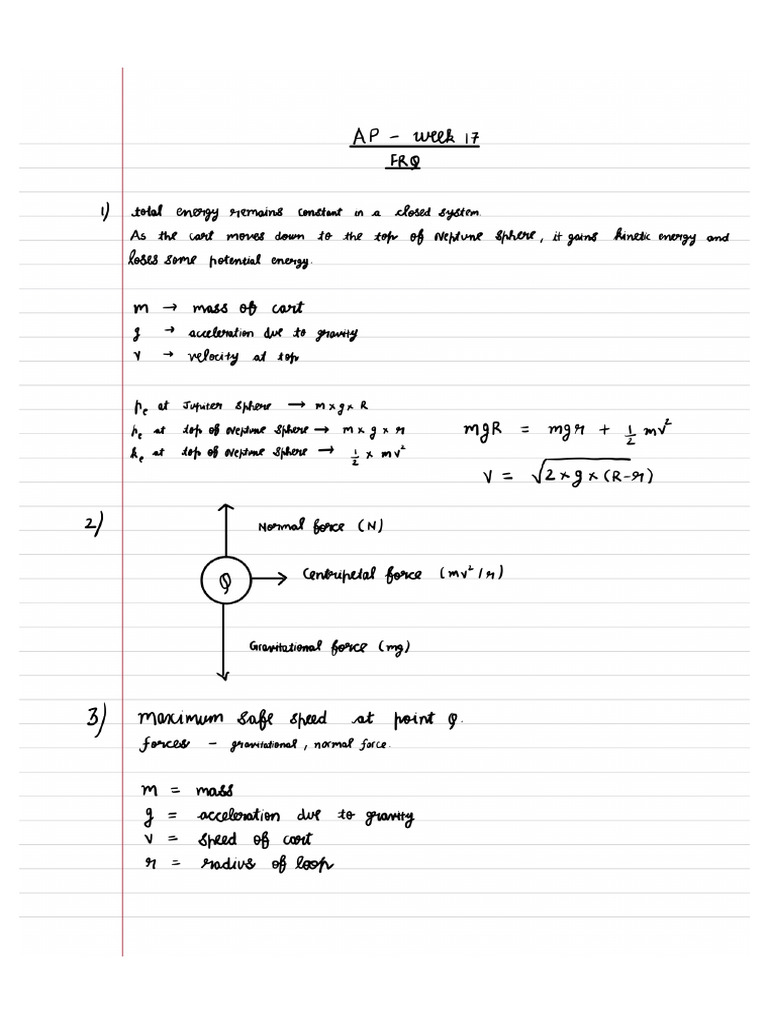 AP - week 17
FRQ
1) total energy remains constant in a closed system.
As the cart moves down to the top of Neptune sphere, it gains kinetic energy and
loses some potential energy.
m → mass of cart
g → acceleration due to gravity
v → velocity at top
Pe at Jupiter Sphere → m×g×R
Pe at top of Neptune Sphere → m×g×r
ke at top of Neptune Sphere → 1/2 × mv²
mgR = mgr + 1/2 mv²
v = √2×g×(R-r)
2)
Normal force (N)
Q
Centripetal force (mv²/r)
Gravitational force (mg)
3) maximum safe speed at point Q.
forces - gravitational, normal force.
m = mass
g = acceleration due to gravity
v = speed of cart
r = radius of loop